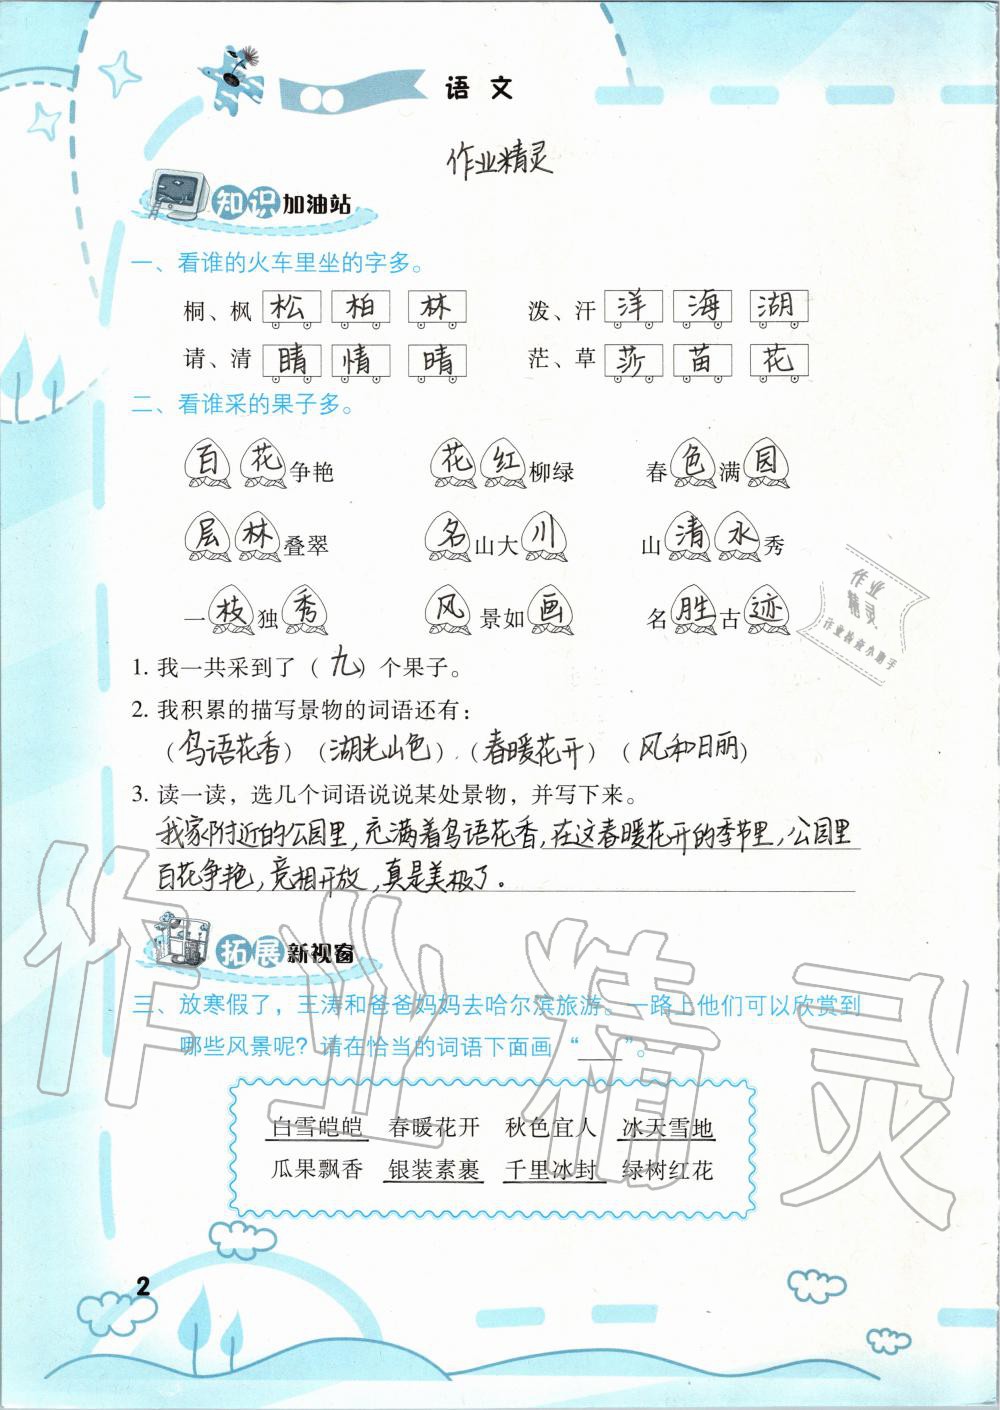 语 文
作业精灵
知识加油站
一、看谁的火车里坐的字多。
桐、枫 松 柏 林 泼、汗 洋 海 湖
请、清 睛 情 晴 茫、草 莎 苗 花
二、看谁采的果子多。
百花争艳 花红柳绿 春色满园
层林叠翠 名山大川 山清水秀
一枝独秀 风景如画 名胜古迹
1. 我一共采到了（九）个果子。
2. 我积累的描写景物的词语还有：
（鸟语花香）（湖光山色）（春暖花开）（风和日丽）
3. 读一读，选几个词语说说某处景物，并写下来。
我家附近的公园里，充满着鸟语花香，在这春暖花开的季节里，公园里
百花争艳，竞相开放，真是美极了。
作业
精灵
拓展新视窗
三、放寒假了，王涛和爸爸妈妈去哈尔滨旅游。一路上他们可以欣赏到
哪些风景呢？请在恰当的词语下面画“___”。
白雪皑皑 春暖花开 秋色宜人 冰天雪地
瓜果飘香 银装素裹 千里冰封 绿树红花
作业精灵
2